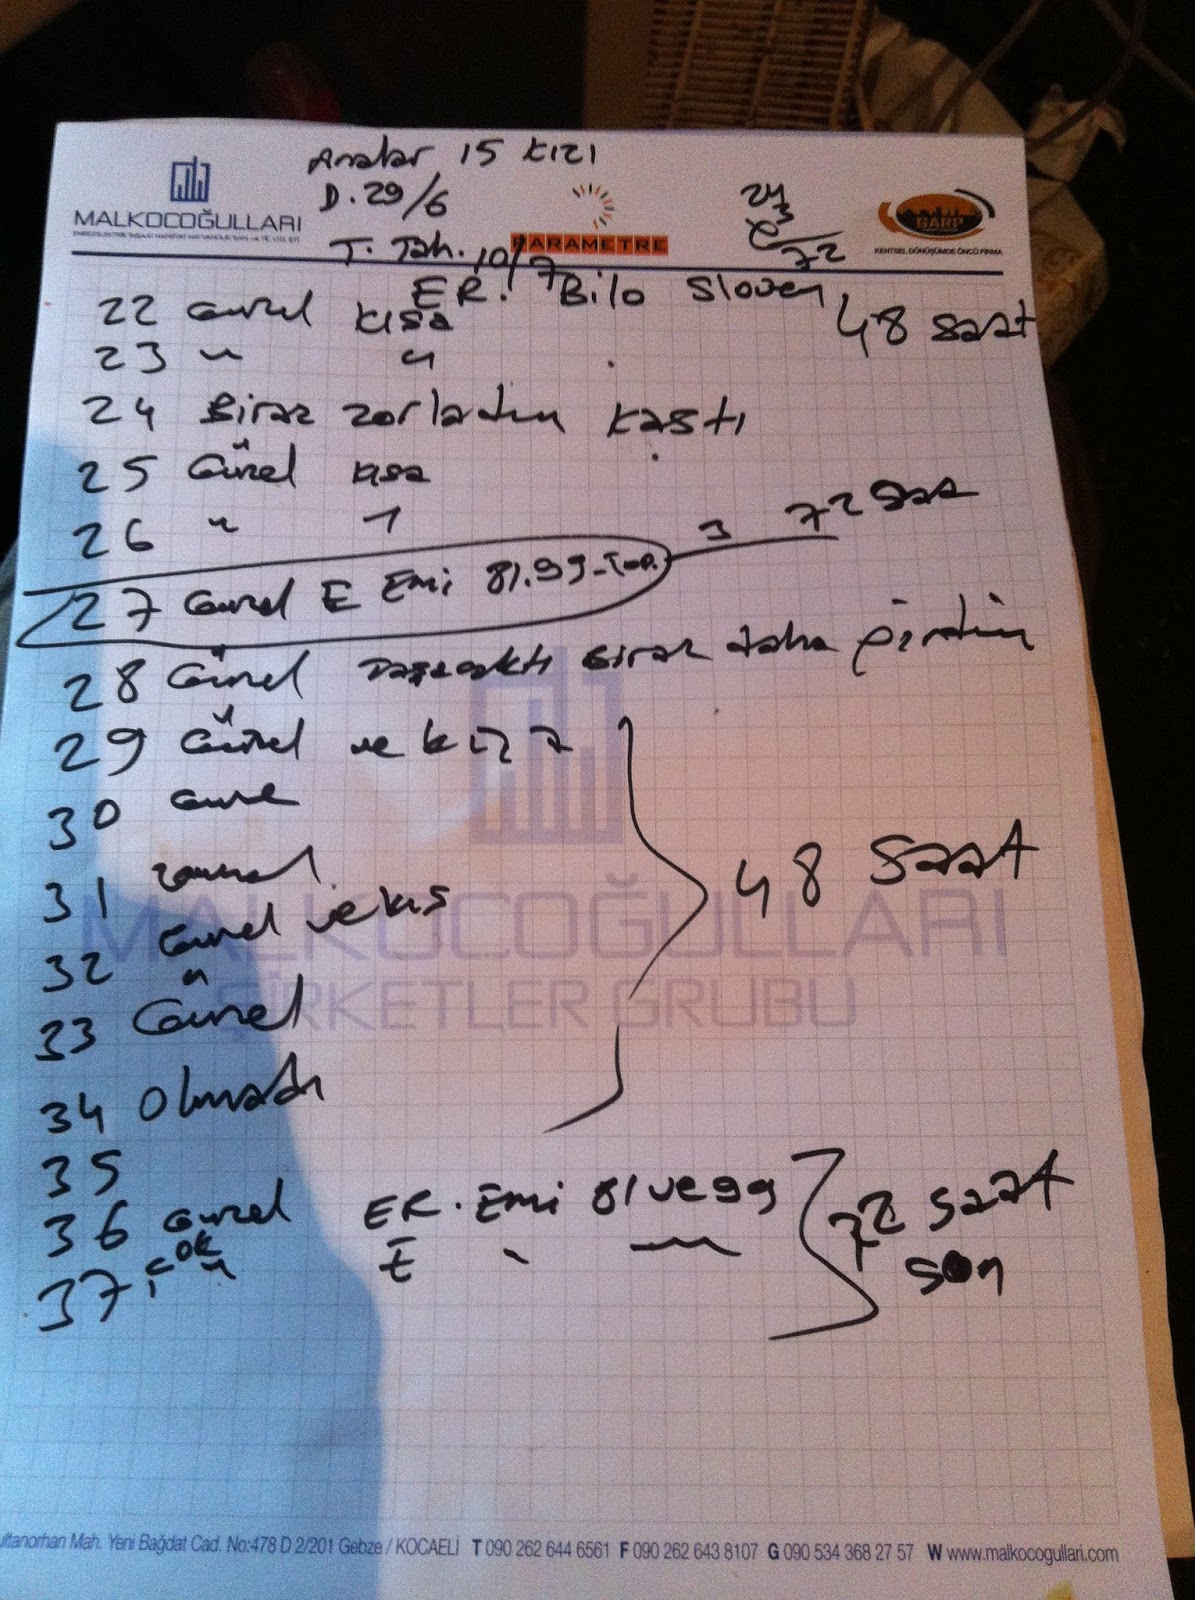 15 KIZI
D. 29/6
24
3
72
MALKOCOĞULLARI
PARAMETRE
GARP
KENTSEL DÖNÜŞÜMDE ÖNCÜ FİRMA
T. Tah. 10/7
ER. Bilo Sloven
22 Güzel kısa 48 saat
23 " "
24 Biraz zorladım kastı
25 Güzel kısa
26 " 1
27 Güzel E Emi 81.99 3 72 saat
28 Güzel biraz daha
29 Güzel ve
30
31
32 Güzel ve 48 saat
33 Güzel
34 olmadı
MALKOCOĞULLARI
ŞİRKETLER GRUBU
35
36 Güzel ER. Emi 81 ve 99 72 saat
37 çok " E " son
ultanorhan Mah. Yeni Bağdat Cad. No:478 D 2/201 Gebze / KOCAELİ T 090 262 644 6561 F 090 262 643 8107 G 090 534 368 27 57 W www.malkocogullari.com